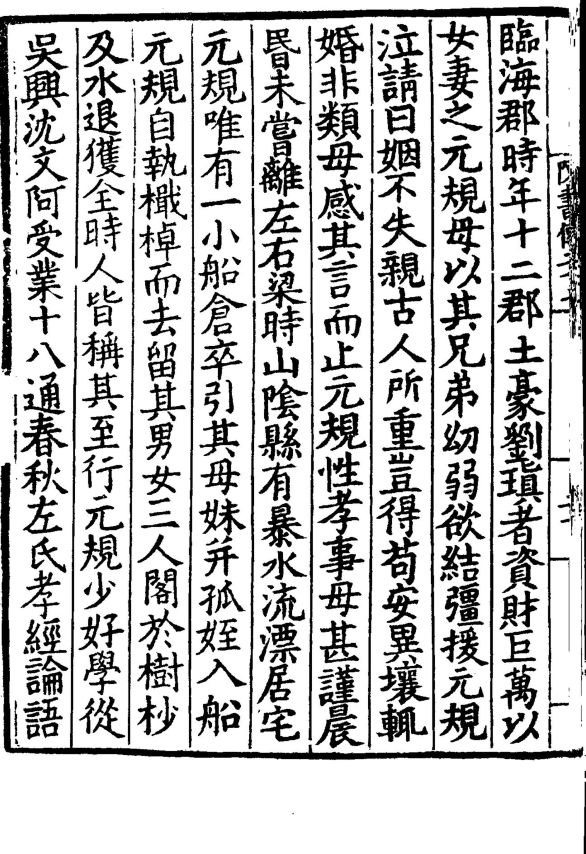 臨海郡時年十二郡土豪劉瑱者資財巨萬以
女妻之元規母以其兄弟幼弱欲結彊援元規
泣請曰姻不失親古人所重豈得苟安異壤輒
婚非類母感其言而止元規性孝事母甚謹晨
昬未嘗離左右梁時山陰縣有暴水流漂居宅
元規唯有一小船倉卒引其母妹并孤姪入船
元規自執檝棹而去留其男女三人閣於樹杪
及水退獲全時人皆稱其至行元規少好學從
吳興沈文阿受業十八通春秋左氏孝經論語